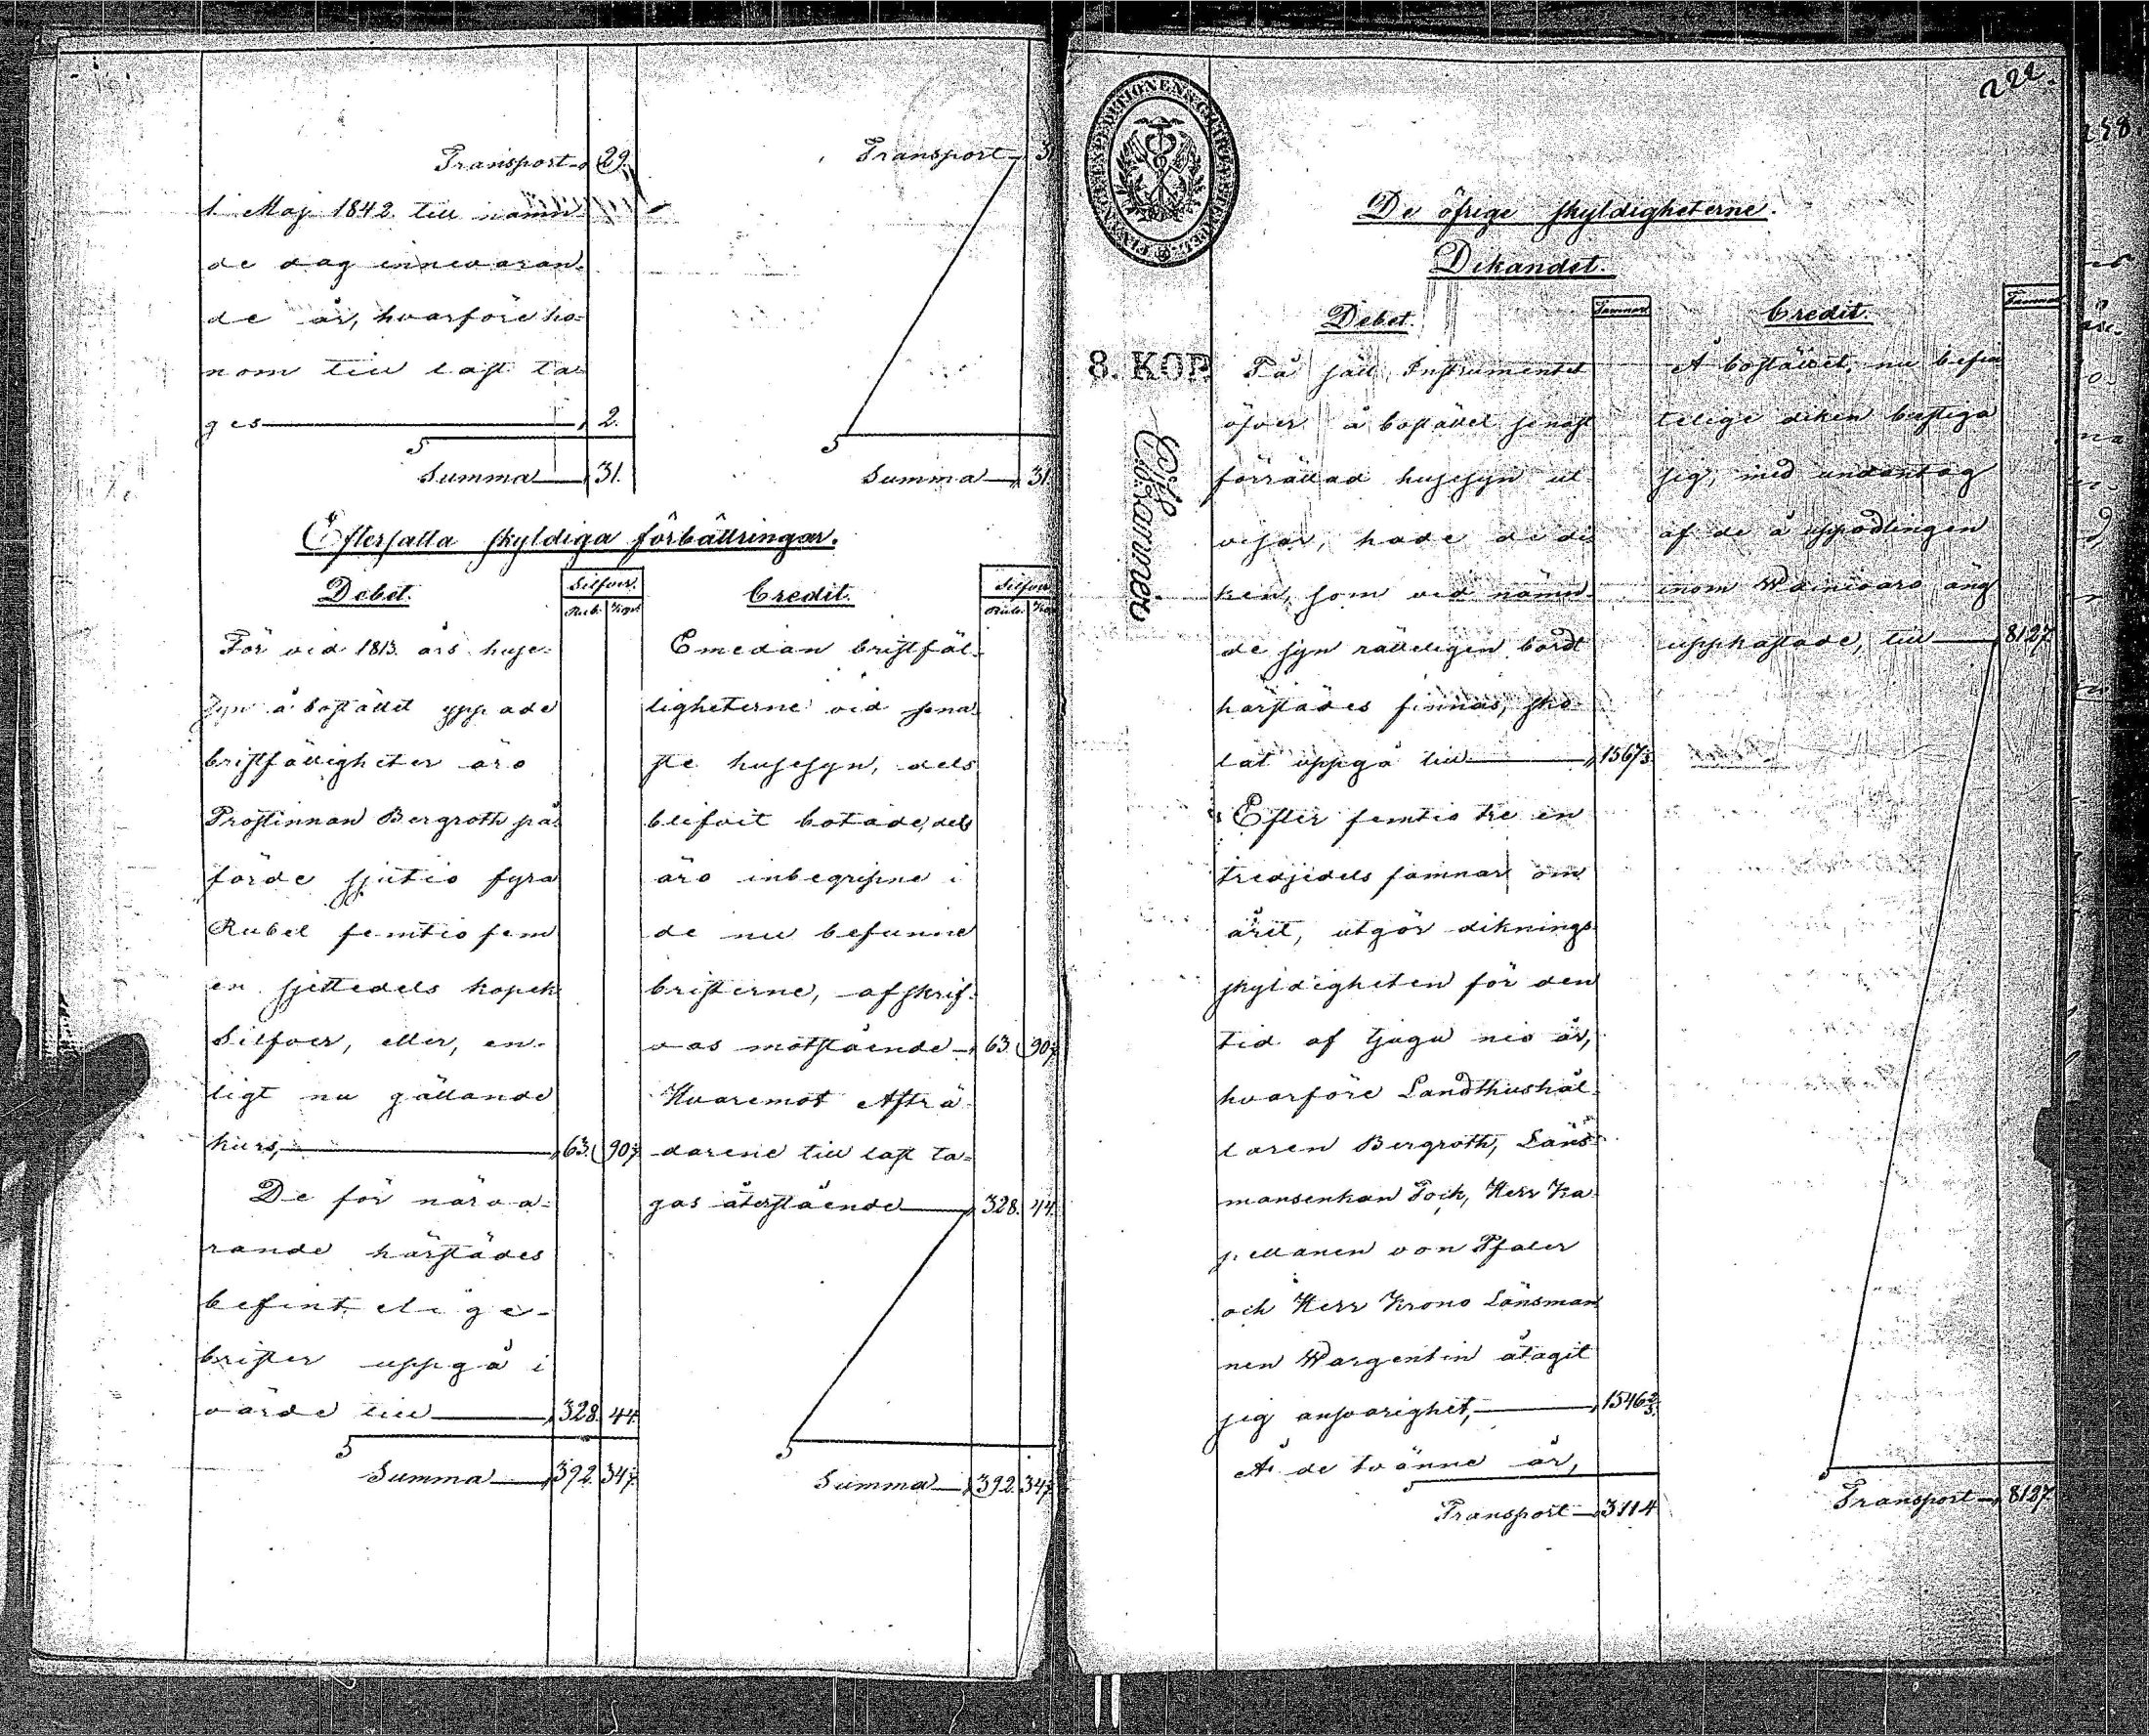 Transport 29.
1. Maj 1842. till nämn-
de dag innevaran-
de år, hvarföre ho-
nom till last ta-
ges 2.
Summa 31.
Transport 31
Summa 31.
Eftersatta skyldiga förbättringar.
Debet.
Silfver.
Rub. Kop.
För vid 1813. års huse-
syn å bostället yppade
bristfälligheter äro
Prostinnan Bergroth på-
förde sjutio fyra
Rubel femtio fem
en sjettedels kopek
Silfver, eller, en-
ligt nu gällande
kurs, 63. 90
De för närva-
rande härstädes
befintelige
brister uppgå i
värde till 328. 44.
Summa 392. 34
Credit.
Silfver
Rub. Kop
Emedan bristfäl-
ligheterne vid sena-
ste husesyn, dels
blifvit botade, dels
äro inbegripne i
de nu befunne
bristerne, afskrif-
vas motstående 63. 90
Hvaremot Afträ-
darene till last ta-
gas återstående 328. 44.
Summa 392. 34
222.
258.
8. KOP.
De öfrige skyldigheterne.
Dikandet.
Debet.
Famnar
På sätt Instrumentet
öfver å bostället senast
förrättad husesyn ut-
visar, hade de di-
ken, som vid nämn-
de syn rätteligen bordt
härstädes finnas, sko-
lat uppgå till 1567⅓
Efter femtio tre en
tredjedels famnar om
året, utgör diknings-
skyldigheten för den
tid af tjugu nio år,
hvarföre Landthushål-
laren Bergroth, Läns-
mansenkan Fock, Herr Ka-
pellanen von Pfaler
och Herr Krono Länsman-
nen Wargentin åtagit
sig ansvarighet, 1546⅔.
Å de tvänne år,
Transport 3114
Credit.
Famnar
Å bostället, nu befin-
telige diken bestiga
sig, med undantag
af de å uppodlingen
inom Wainioaro äng
uppkastade, till 8127.
Transport 8127.